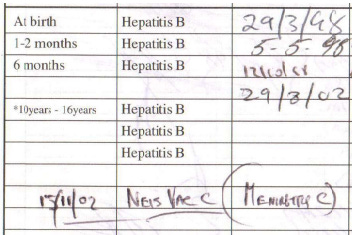 At birth Hepatitis B 29/3/98
1-2 months Hepatitis B 5-5-98
6 months Hepatitis B
29/8/02
*10years - 16years Hepatitis B
Hepatitis B
Hepatitis B
15/11/02 NEIS VAC C (MENINGITIS C)